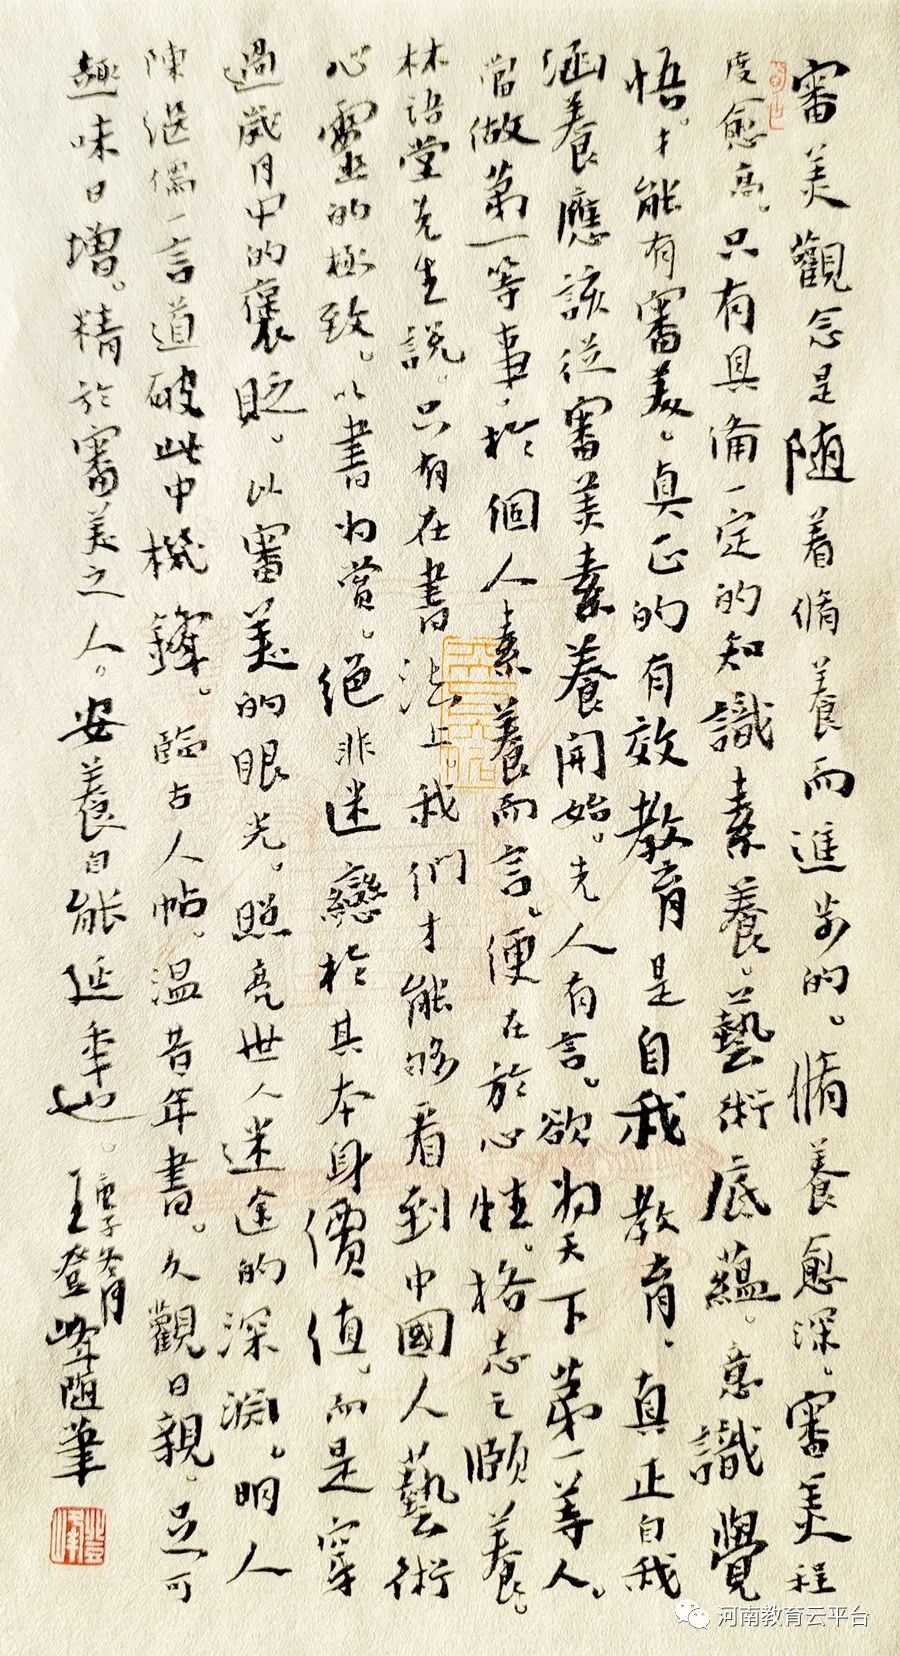 審美觀念是随着脩養而進步的。脩養愈深。審美程
度愈高。只有具備一定的知識素養。藝術底蘊。意識覺
悟。才能有審美。真正的有效教育是自我教育。真正自我
涵養應該從審美素養開始。先人有言。欲为天下第一等人。
當做第一等事。於個人素養而言。便在於心性。格志之頤養。
林語堂先生説。只有在書法上。我們才能够看到中國人藝術
心靈的極致。以書为賞。絕非迷戀於其本身價值。而是穿
過歲月中的褒貶。以審美的眼光。照亮世人迷途的深淵。明人
陳繼儒一言道破此中機鋒。臨古人帖。温昔年書。久觀日親。足可
趣味日增。精於審美之人。安養自能延年也。
庚子冬月
王登峰随筆
河南教育云平台